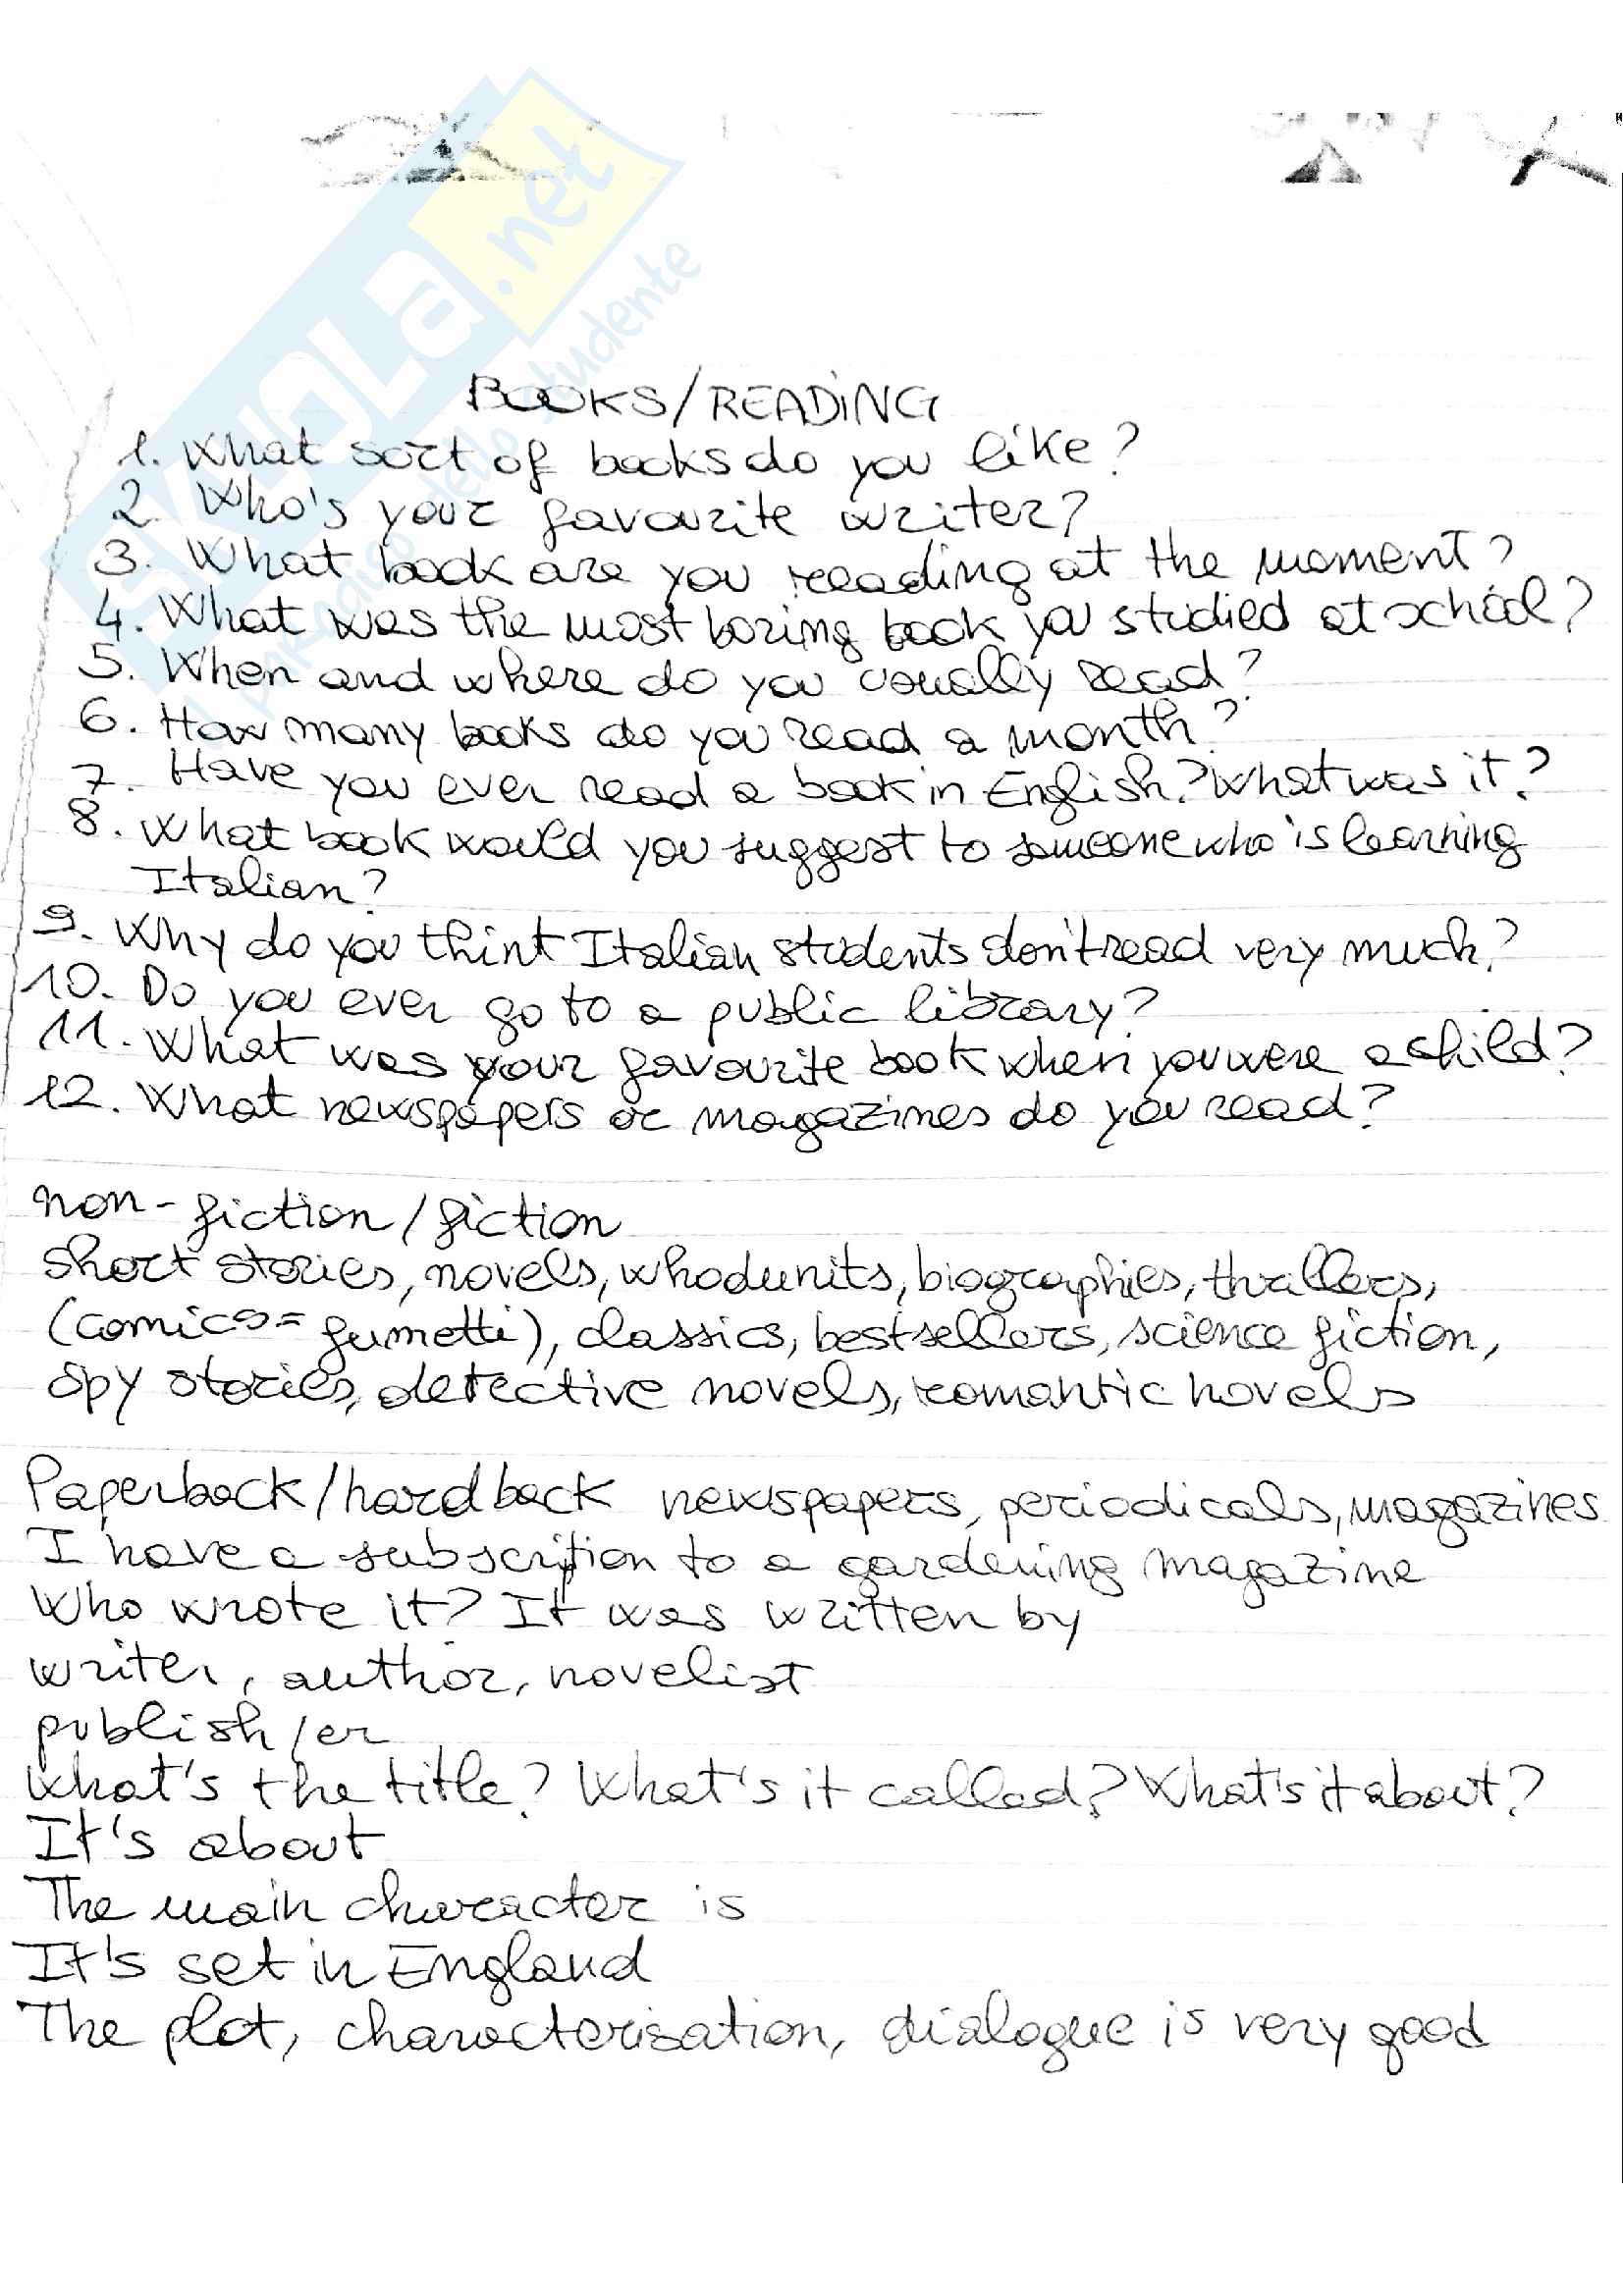 SKUOLA.net
il paradiso dello studente
BOOKS/READING
1. What sort of books do you like?
2. Who's your favourite writer?
3. What book are you reading at the moment?
4. What was the most boring book you studied at school?
5. When and where do you usually read?
6. How many books do you read a month?
7. Have you ever read a book in English? What was it?
8. What book would you suggest to someone who is learning
Italian?
9. Why do you think Italian students don't read very much?
10. Do you ever go to a public library?
11. What was your favourite book when you were a child?
12. What newspapers or magazines do you read?
non-fiction/fiction
short stories, novels, whodunits, biographies, thrillers,
(comics = fumetti), classics, bestsellers, science fiction,
spy stories, detective novels, romantic novels
Paperback/hardback newspapers, periodicals, magazines
I have a subscrition to a gardening magazine
Who wrote it? It was written by
writer, author, novelist
publish/er
What's the title? What's it called? What's it about?
It's about
The main character is
It's set in England
The plot, characterisation, dialogue is very good